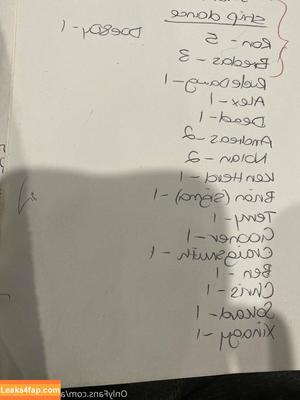 strip dance
Ron - 5
Doegoy - 1
Bredas - 3
RideDawg - 1
Alex - 1
Dead - 1
Andreas - 2
Nolan - 2
Ken Herd - 1
Brian (signa) - 1
Terry - 1
Craigsmith - 1
Ben - 1
Chris - 1
Xinagy - 1
OnlyFans.com/a
Leaks4fap.com